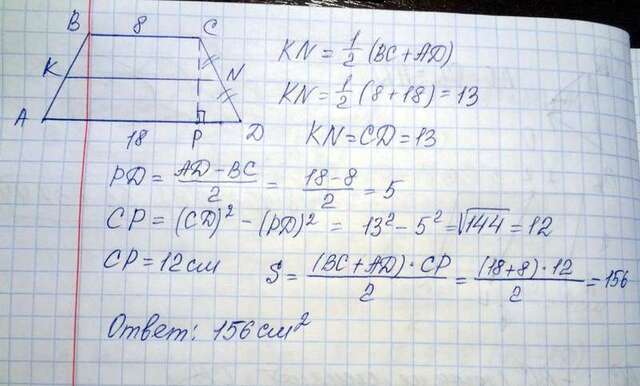 B 8 C
K N
A 18 P D
KN = 1/2 (BC + AD)
KN = 1/2 (8 + 18) = 13
KN = CD = 13
PD = (AD - BC)/2 = (18 - 8)/2 = 5
CP = (CD)² - (PD)² = 13² - 5² = √144 = 12
CP = 12 см S = ((BC + AD) · CP)/2 = ((18 + 8) · 12)/2 = 156
Ответ: 156 см²